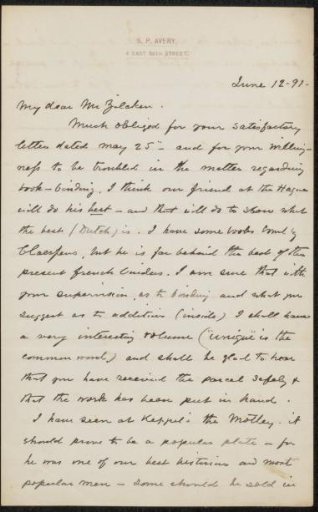 S. P. AVERY,
4 EAST 38TH STREET.
June 12-91-
My dear Mr Zilcken.
Much obliged for your satisfactory
letter dated May 25 - and for your willing-
ness to be troubled in the matter regarding
book-binding, I think our friend at the Hague
will do his best - and that will do to show what
the best (Dutch) is. I have some books bound by
Claessens, but he is far behind the best of the
present french binders. I am sure that with
your supervision, as to binding and what you
suggest as to addition (inside) I shall have
a very interesting volume ("unique" is the
common word,) and shall be glad to hear
that you have received the parcel safely &
that the work has been put in hand.
I have seen at Keppel's the Motley. it
should prove to be a popular plate - for
he was one of our best historians and most
popular men - some should be sold in